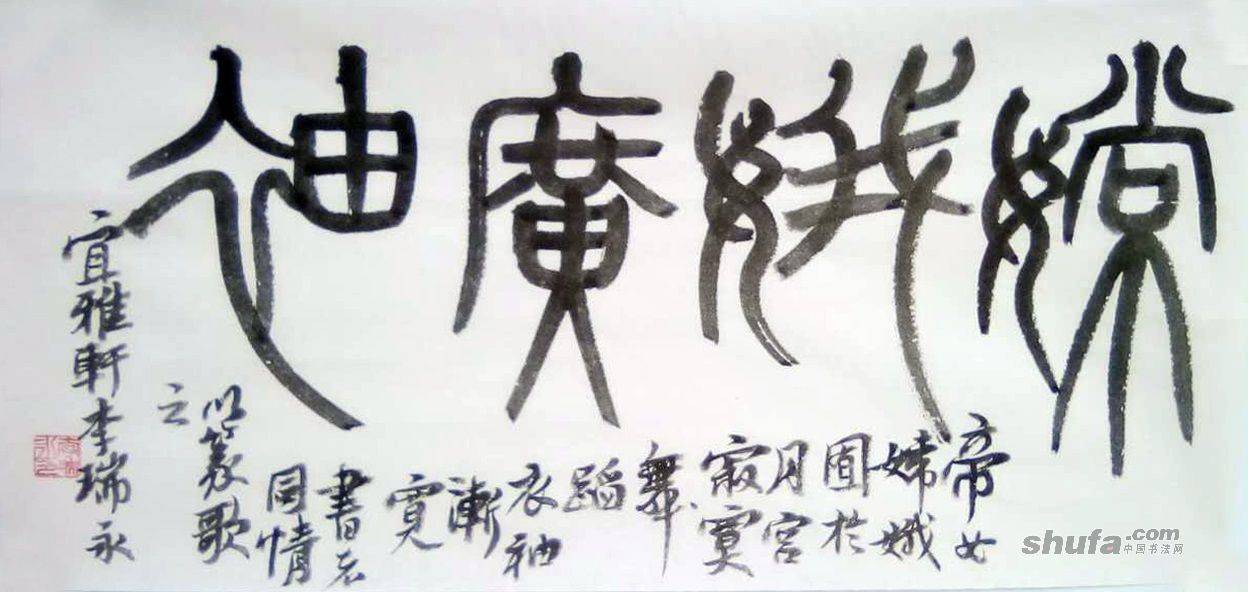 嫦娥廣袖
帝女
嫦娥
囿於
月宮
寂寞
舞
蹈
衣袖
漸
寬
書者
同情
以篆歌
之
宜雅軒李瑞永
shufa.com
中国书法网